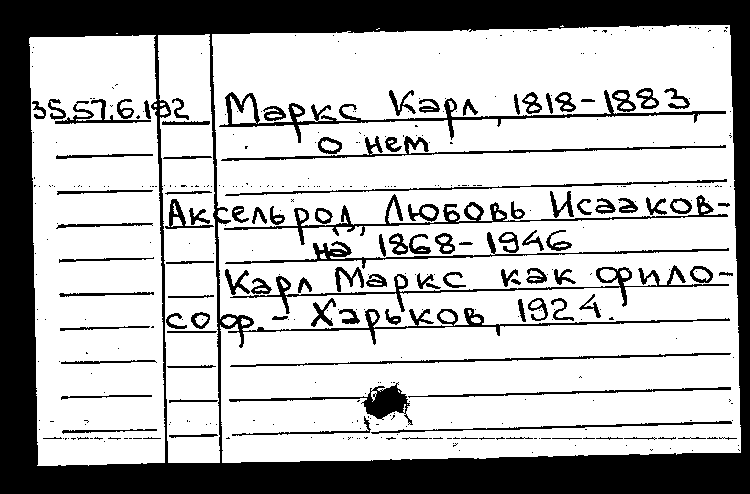 35.57.6.192 Маркс Карл, 1818-1883,
о нем
Аксельрод, Любовь Исааков-
на, 1868-1946
Карл Маркс как фило-
соф. - Харьков, 1924.